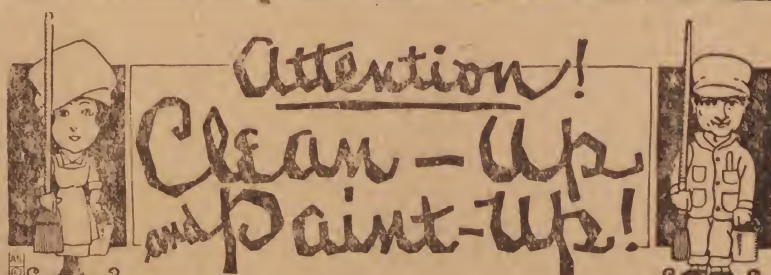 Attention!
Clean-Up
and Paint-Up!